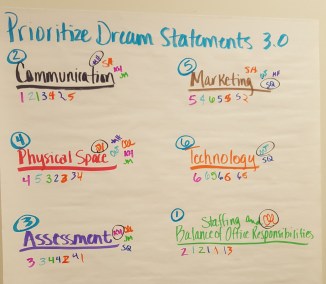 Prioritize Dream Statements 3.0
2
Communication
SA
1 2 1 3 4 2 5
5
Marketing
SA
5 4 6 5 5 5 2
4
Physical Space
4 5 3 2 3 3 4
6
Technology
SQ
6 6 5 6 6 6 5
3
Assessment
SQ
3 3 4 4 2 4 1
1
Staffing and
Balance of Office Responsibilities
2 1 2 1 1 1 3